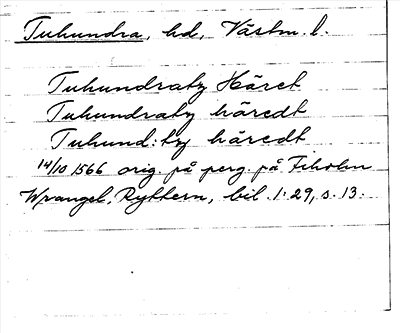 Tuhundra, hd, Västm. l.
Tuhundratz Häret
Tuhundratz häredt
Tuhund:tz häredt
14/10 1566 orig. på perg. på Fiholm
Wrangel, Ryttern, bil. 1:29, s. 13.